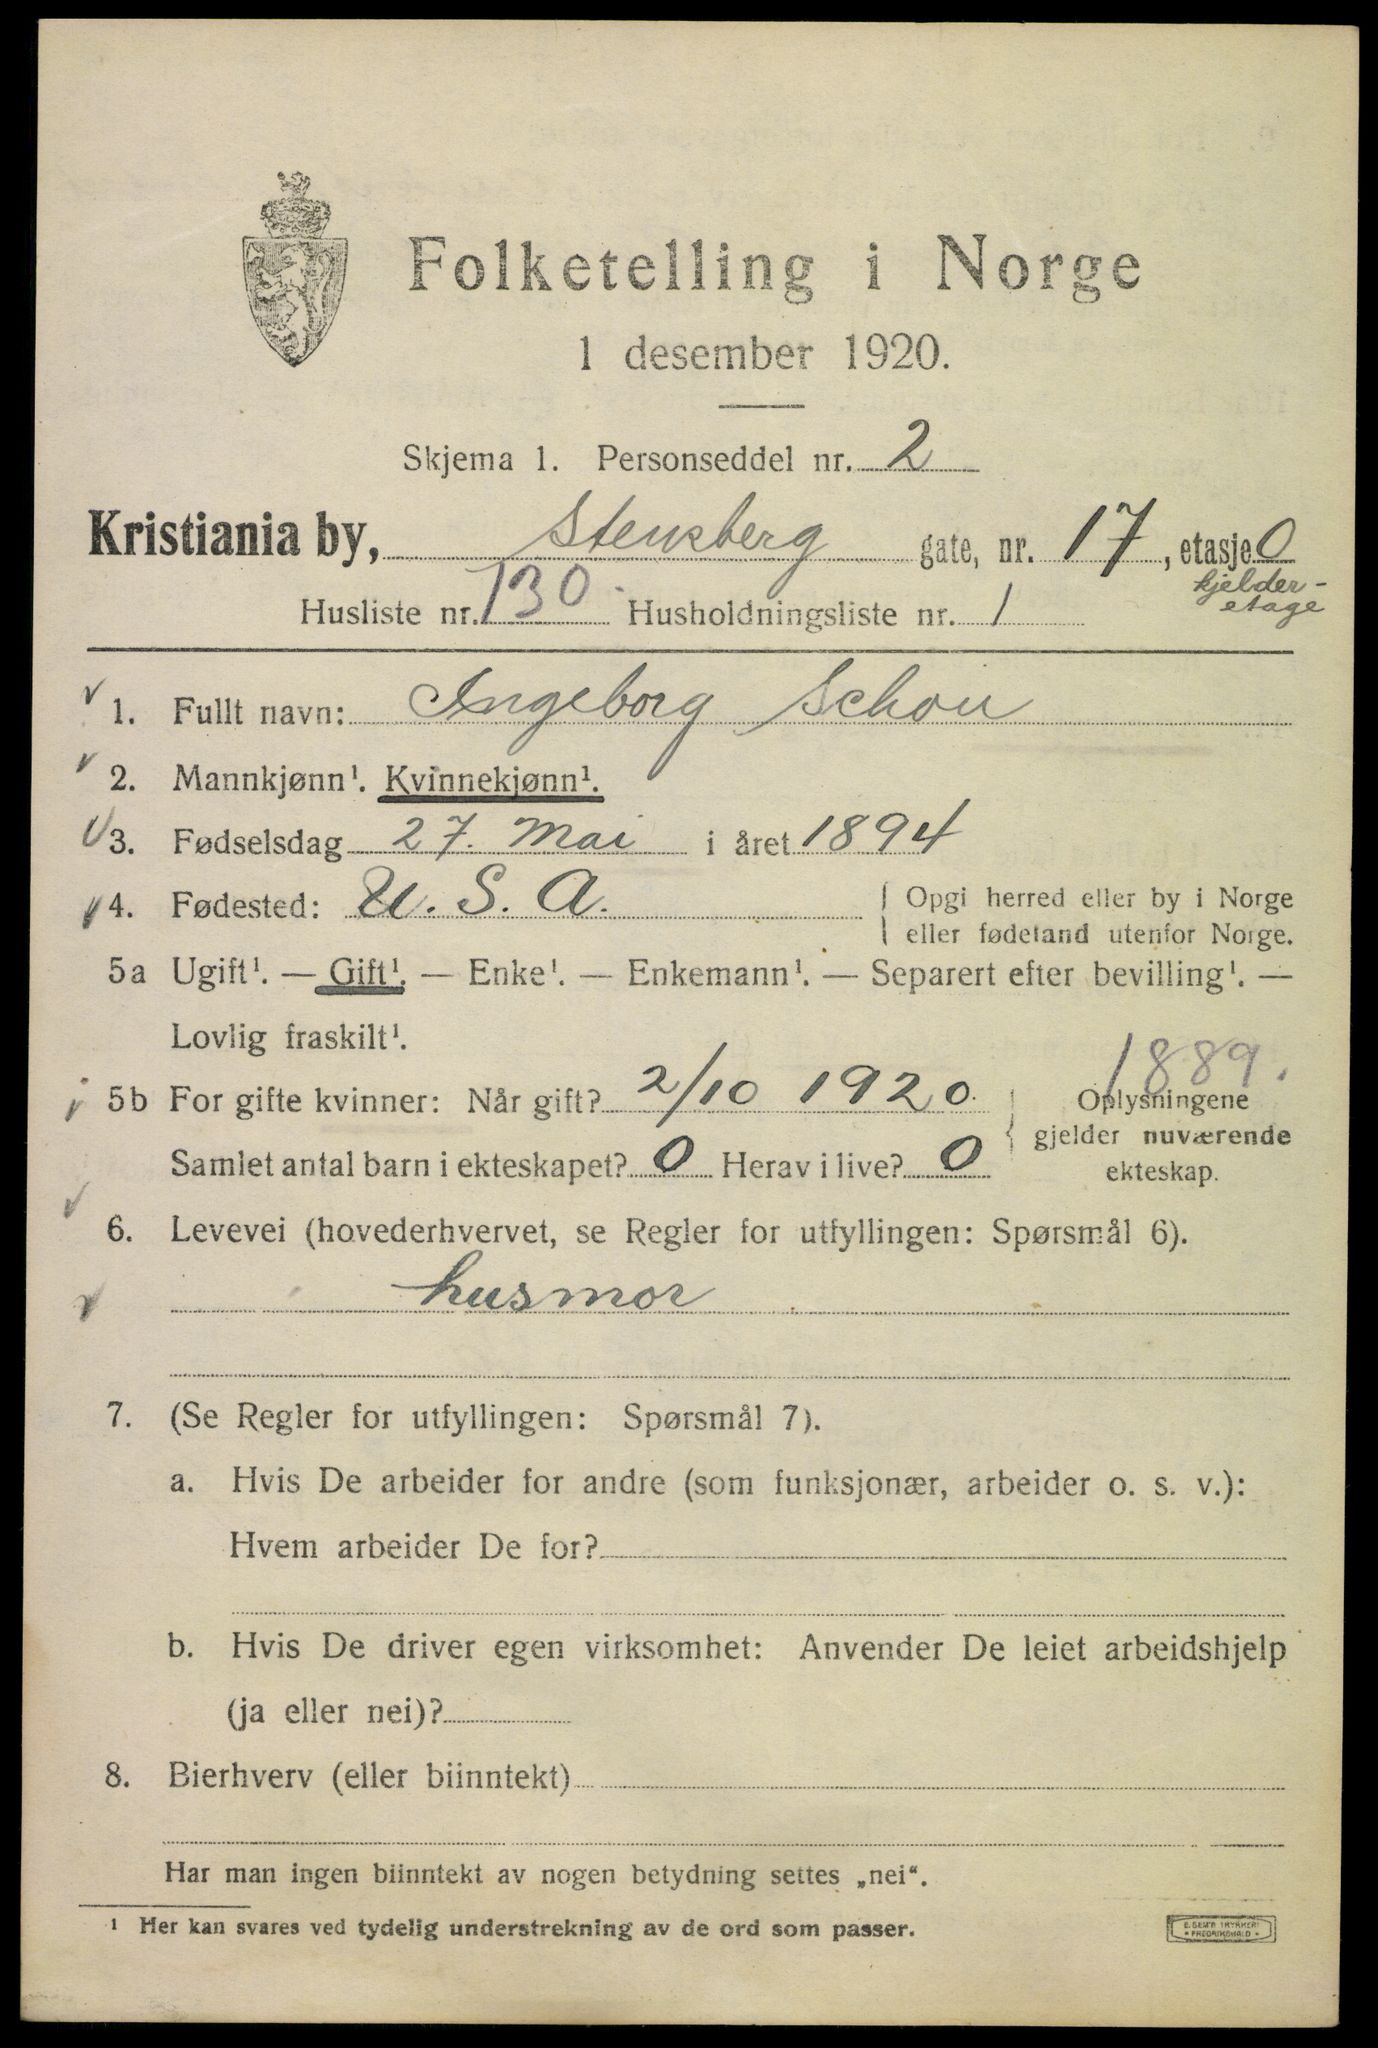 Folketelling i Norge
1 desember 1920.
Skjema 1. Personseddel nr. 2
Kristiania by, Stensberg gate, nr. 17, etasje 0
kjelder-
etage
Husliste nr. 130. Husholdningsliste nr. 1
1. Fullt navn: Ingeborg Schou
2. Mannkjønn¹. Kvinnekjønn¹.
3. Fødselsdag 27. Mai i året 1894
4. Fødested: U. S. A. Opgi herred eller by i Norge
eller fødeland utenfor Norge.
5a Ugift¹. — Gift¹. — Enke¹. — Enkemann¹. — Separert efter bevilling¹. —
Lovlig fraskilt¹.
1889.
5b For gifte kvinner: Når gift? 2/10 1920. Oplysningene
gjelder nuværende
Samlet antal barn i ekteskapet? 0 Herav i live? 0 ekteskap.
6. Levevei (hovederhvervet, se Regler for utfyllingen: Spørsmål 6).
husmor
7. (Se Regler for utfyllingen: Spørsmål 7).
a. Hvis De arbeider for andre (som funksjonær, arbeider o. s. v.):
Hvem arbeider De for?
b. Hvis De driver egen virksomhet: Anvender De leiet arbeidshjelp
(ja eller nei)?
8. Bierhverv (eller biinntekt)
Har man ingen biinntekt av nogen betydning settes „nei“.
¹ Her kan svares ved tydelig understrekning av de ord som passer.
E. SEM'S TRYKKERI
• FREDRIKSHALD •